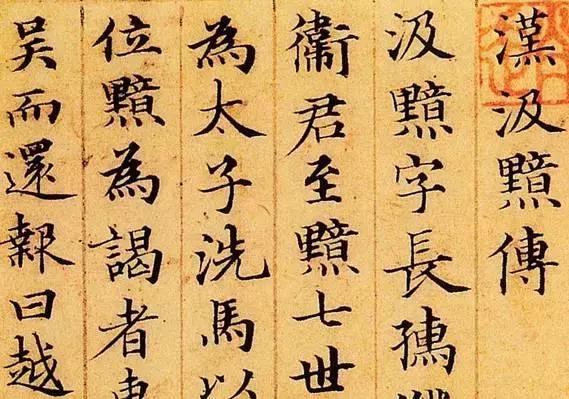 漢汲黯傳
汲黯字長孺
衞君至黯七世
為太子洗馬以
位黯為謁者東
吴而還報曰越